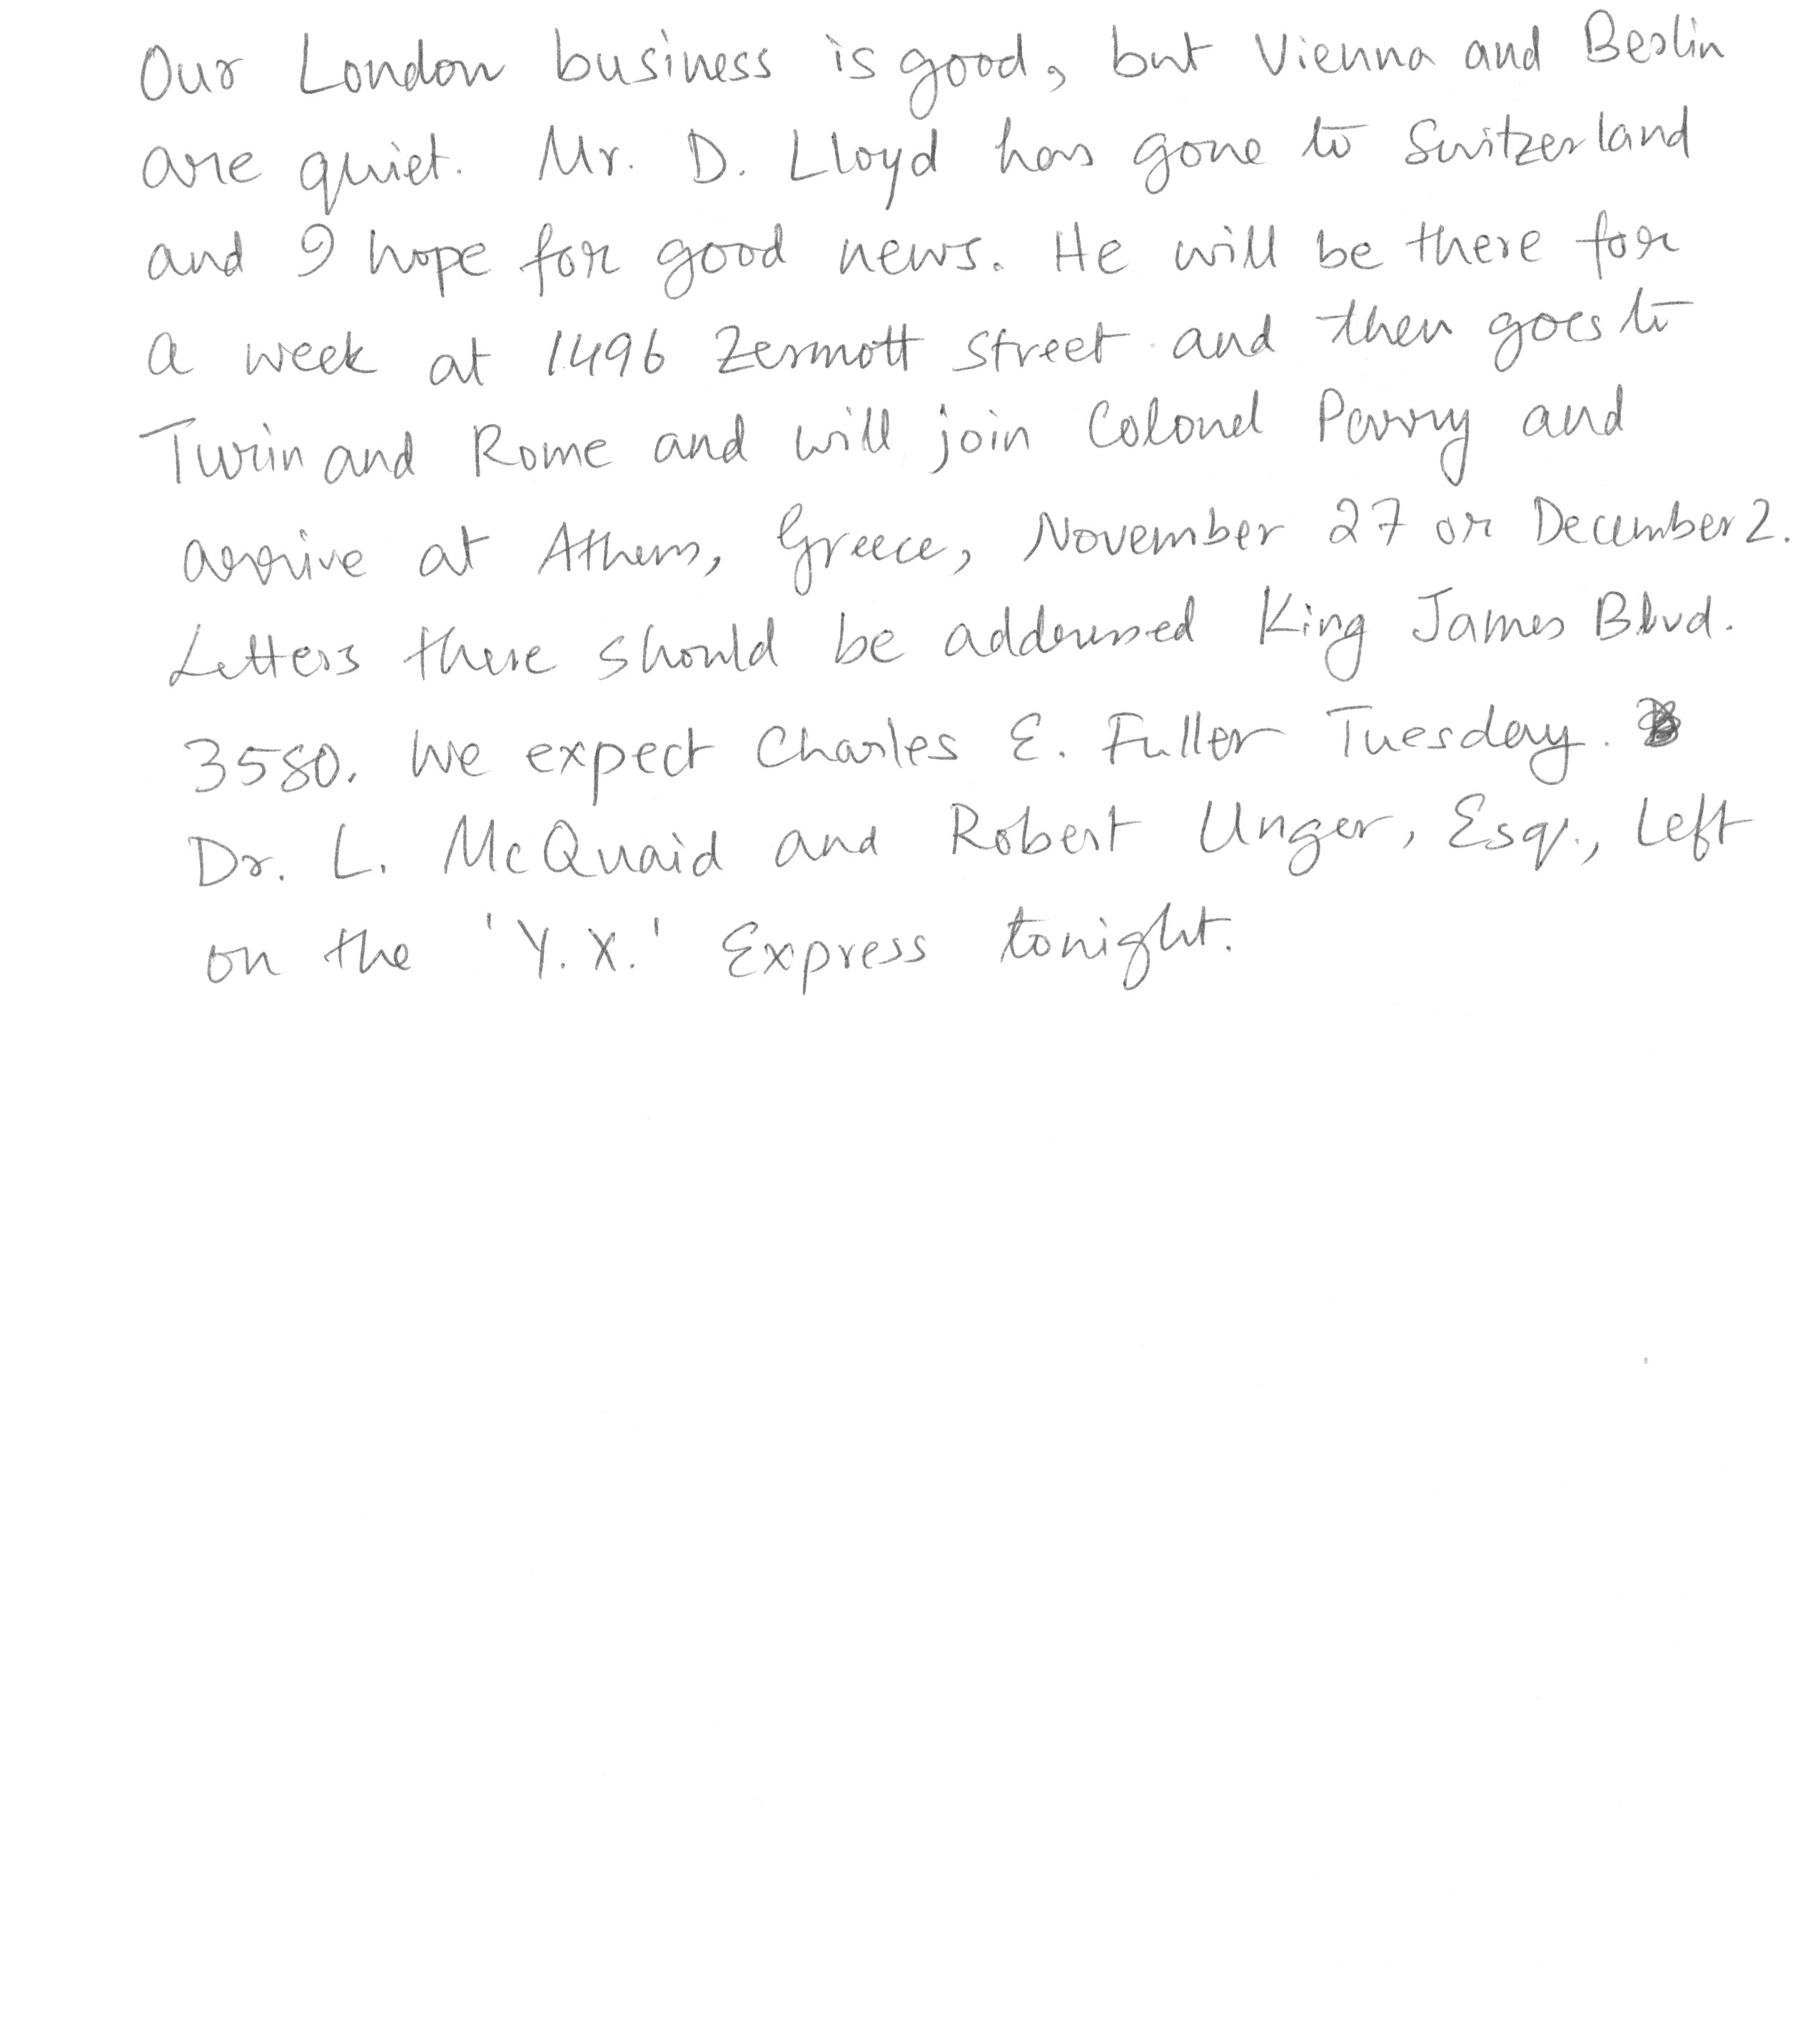 Our London business is good, but Vienna and Berlin
are quiet. Mr. D. Lloyd has gone to Switzerland
and I hope for good news. He will be there for
a week at 1496 Zermott street and then goes to
Turin and Rome and will join Colonel Parry and
arrive at Athens, Greece, November 27 or December 2.
Letters there should be addressed King James Blvd.
3580. We expect Charles E. Fuller Tuesday.
Dr. L. McQuaid and Robert Unger, Esq., Left
on the 'Y. X.' Express tonight.